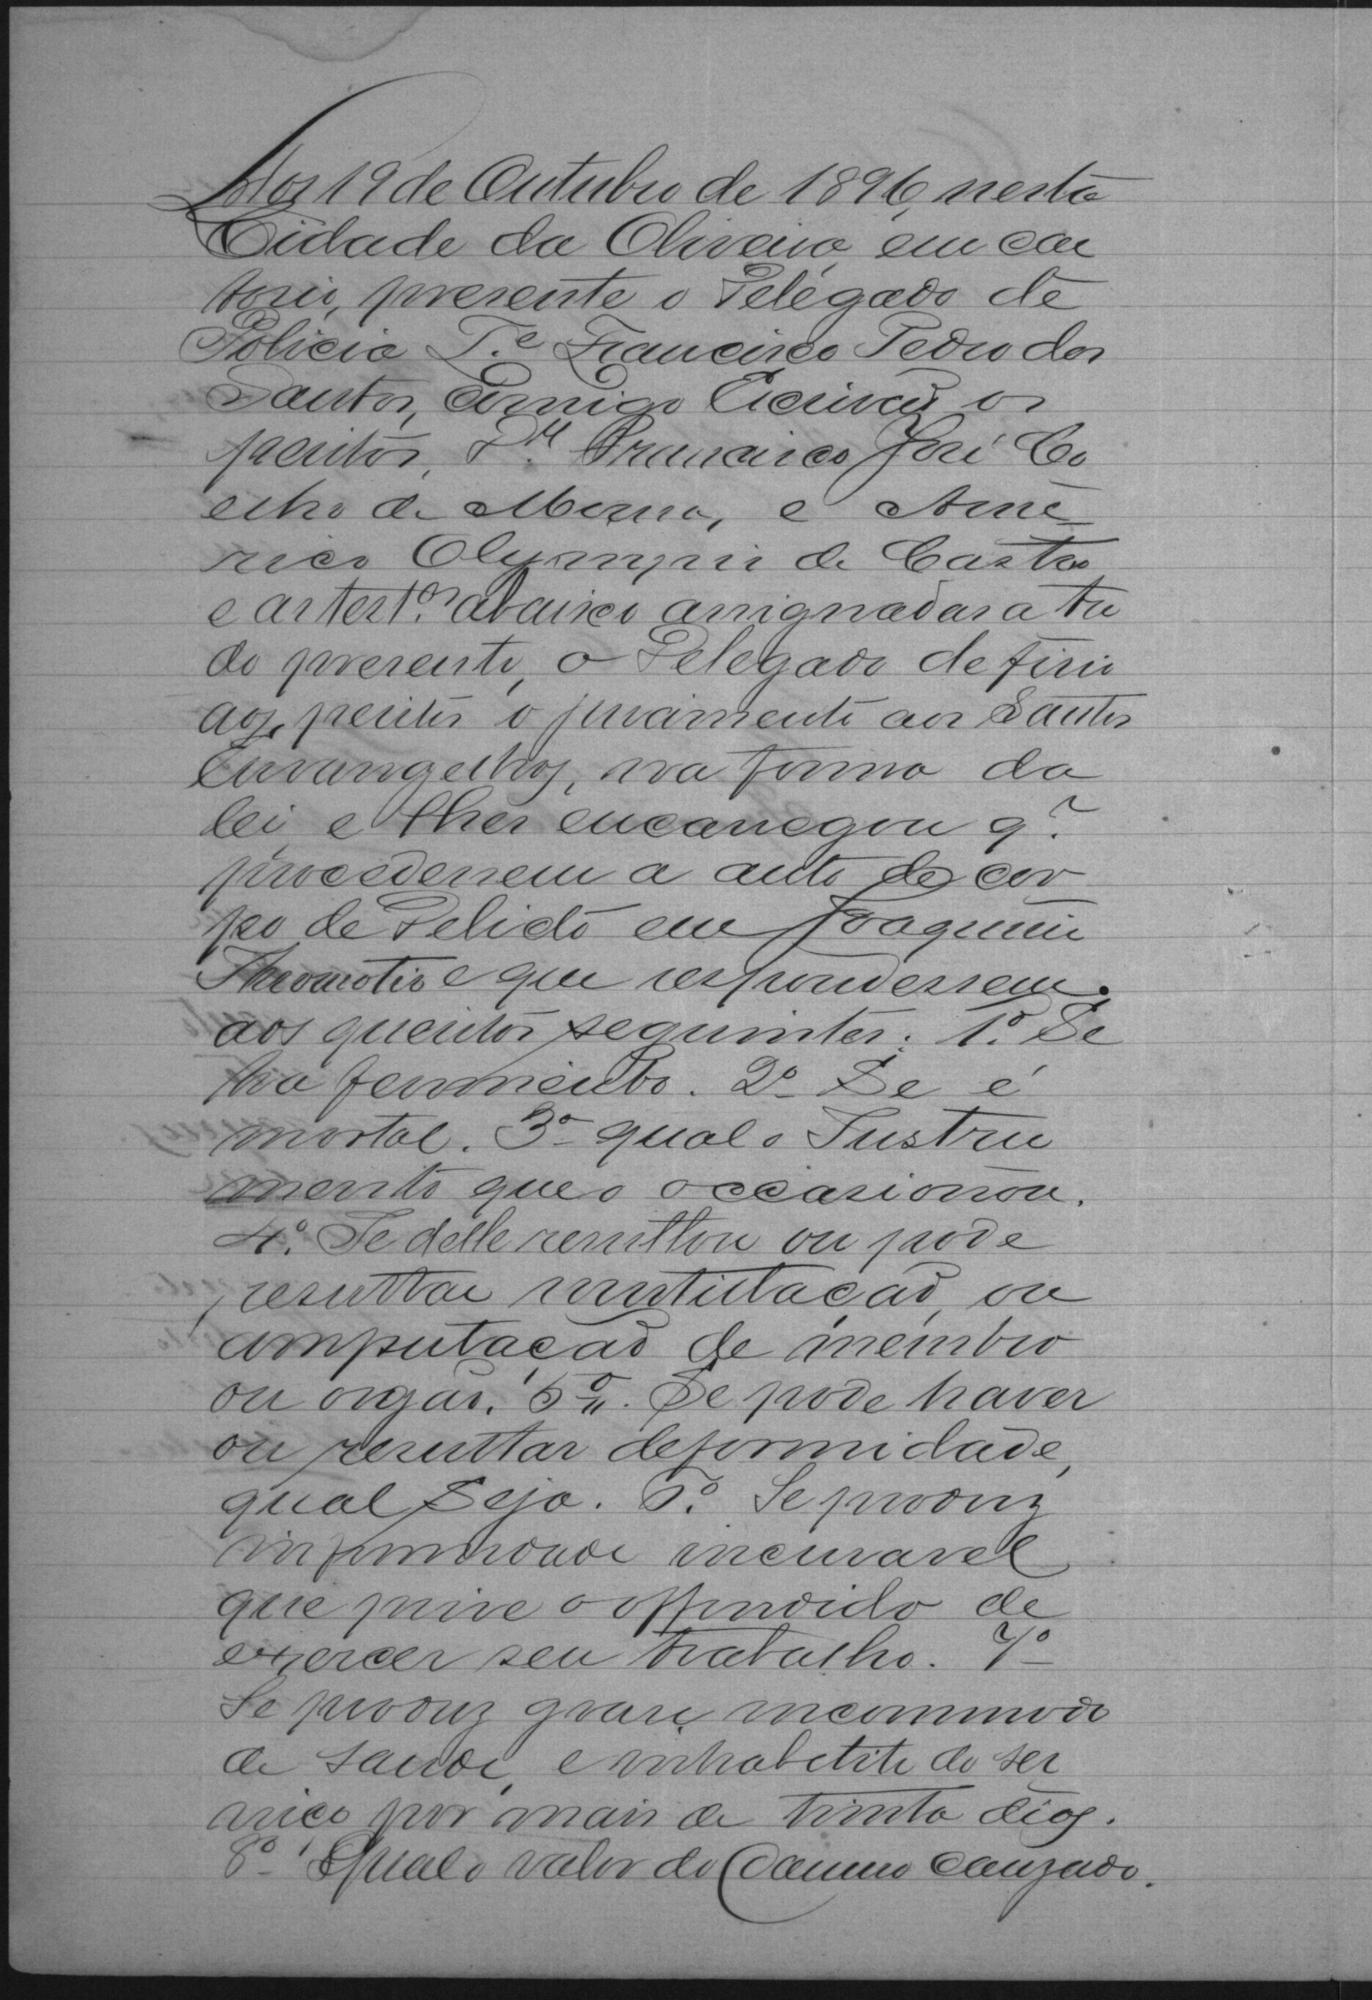 Aos 19 de Outubro de 1896, nesta
Cidade da Oliveira em car
torio, presente o Delegado de
Policia T.e Francisco Pedro dos
Santos, comigo Escrivão os
peritos, Dr. Francisco José Co
elho de Moura, e Ame
rico Olympio de Castro
e as test.as abaixo assignadas a tu
do presente, o Delegado defirio
aos peritos o juramento aos Santos
Envangelhos, na forma da
lei e lhes encarregou q.
procedessem a auto de cor
po de Delicto em Joaquim
e que respondessem
aos quesitos seguintes: 1.º Se
ha ferimento. 2º Se é
mortal. 3º qual o Instru
mento que o occasionou.
4º. Se delle resultou ou pode
resultar mutillação, ou
amputação de membro
ou orgão. 5º. Se pode haver
ou resultar deformidade,
qual seja. 6.º Se produz
infirmidade incuravel
que prive o offendido de
exercer seu trabalho. 7º
Se produz grave incommodo
de saude, e inhabelite do ser
viço por mais de trinta dias.
8º Qual o valor do Damno Cauzado.